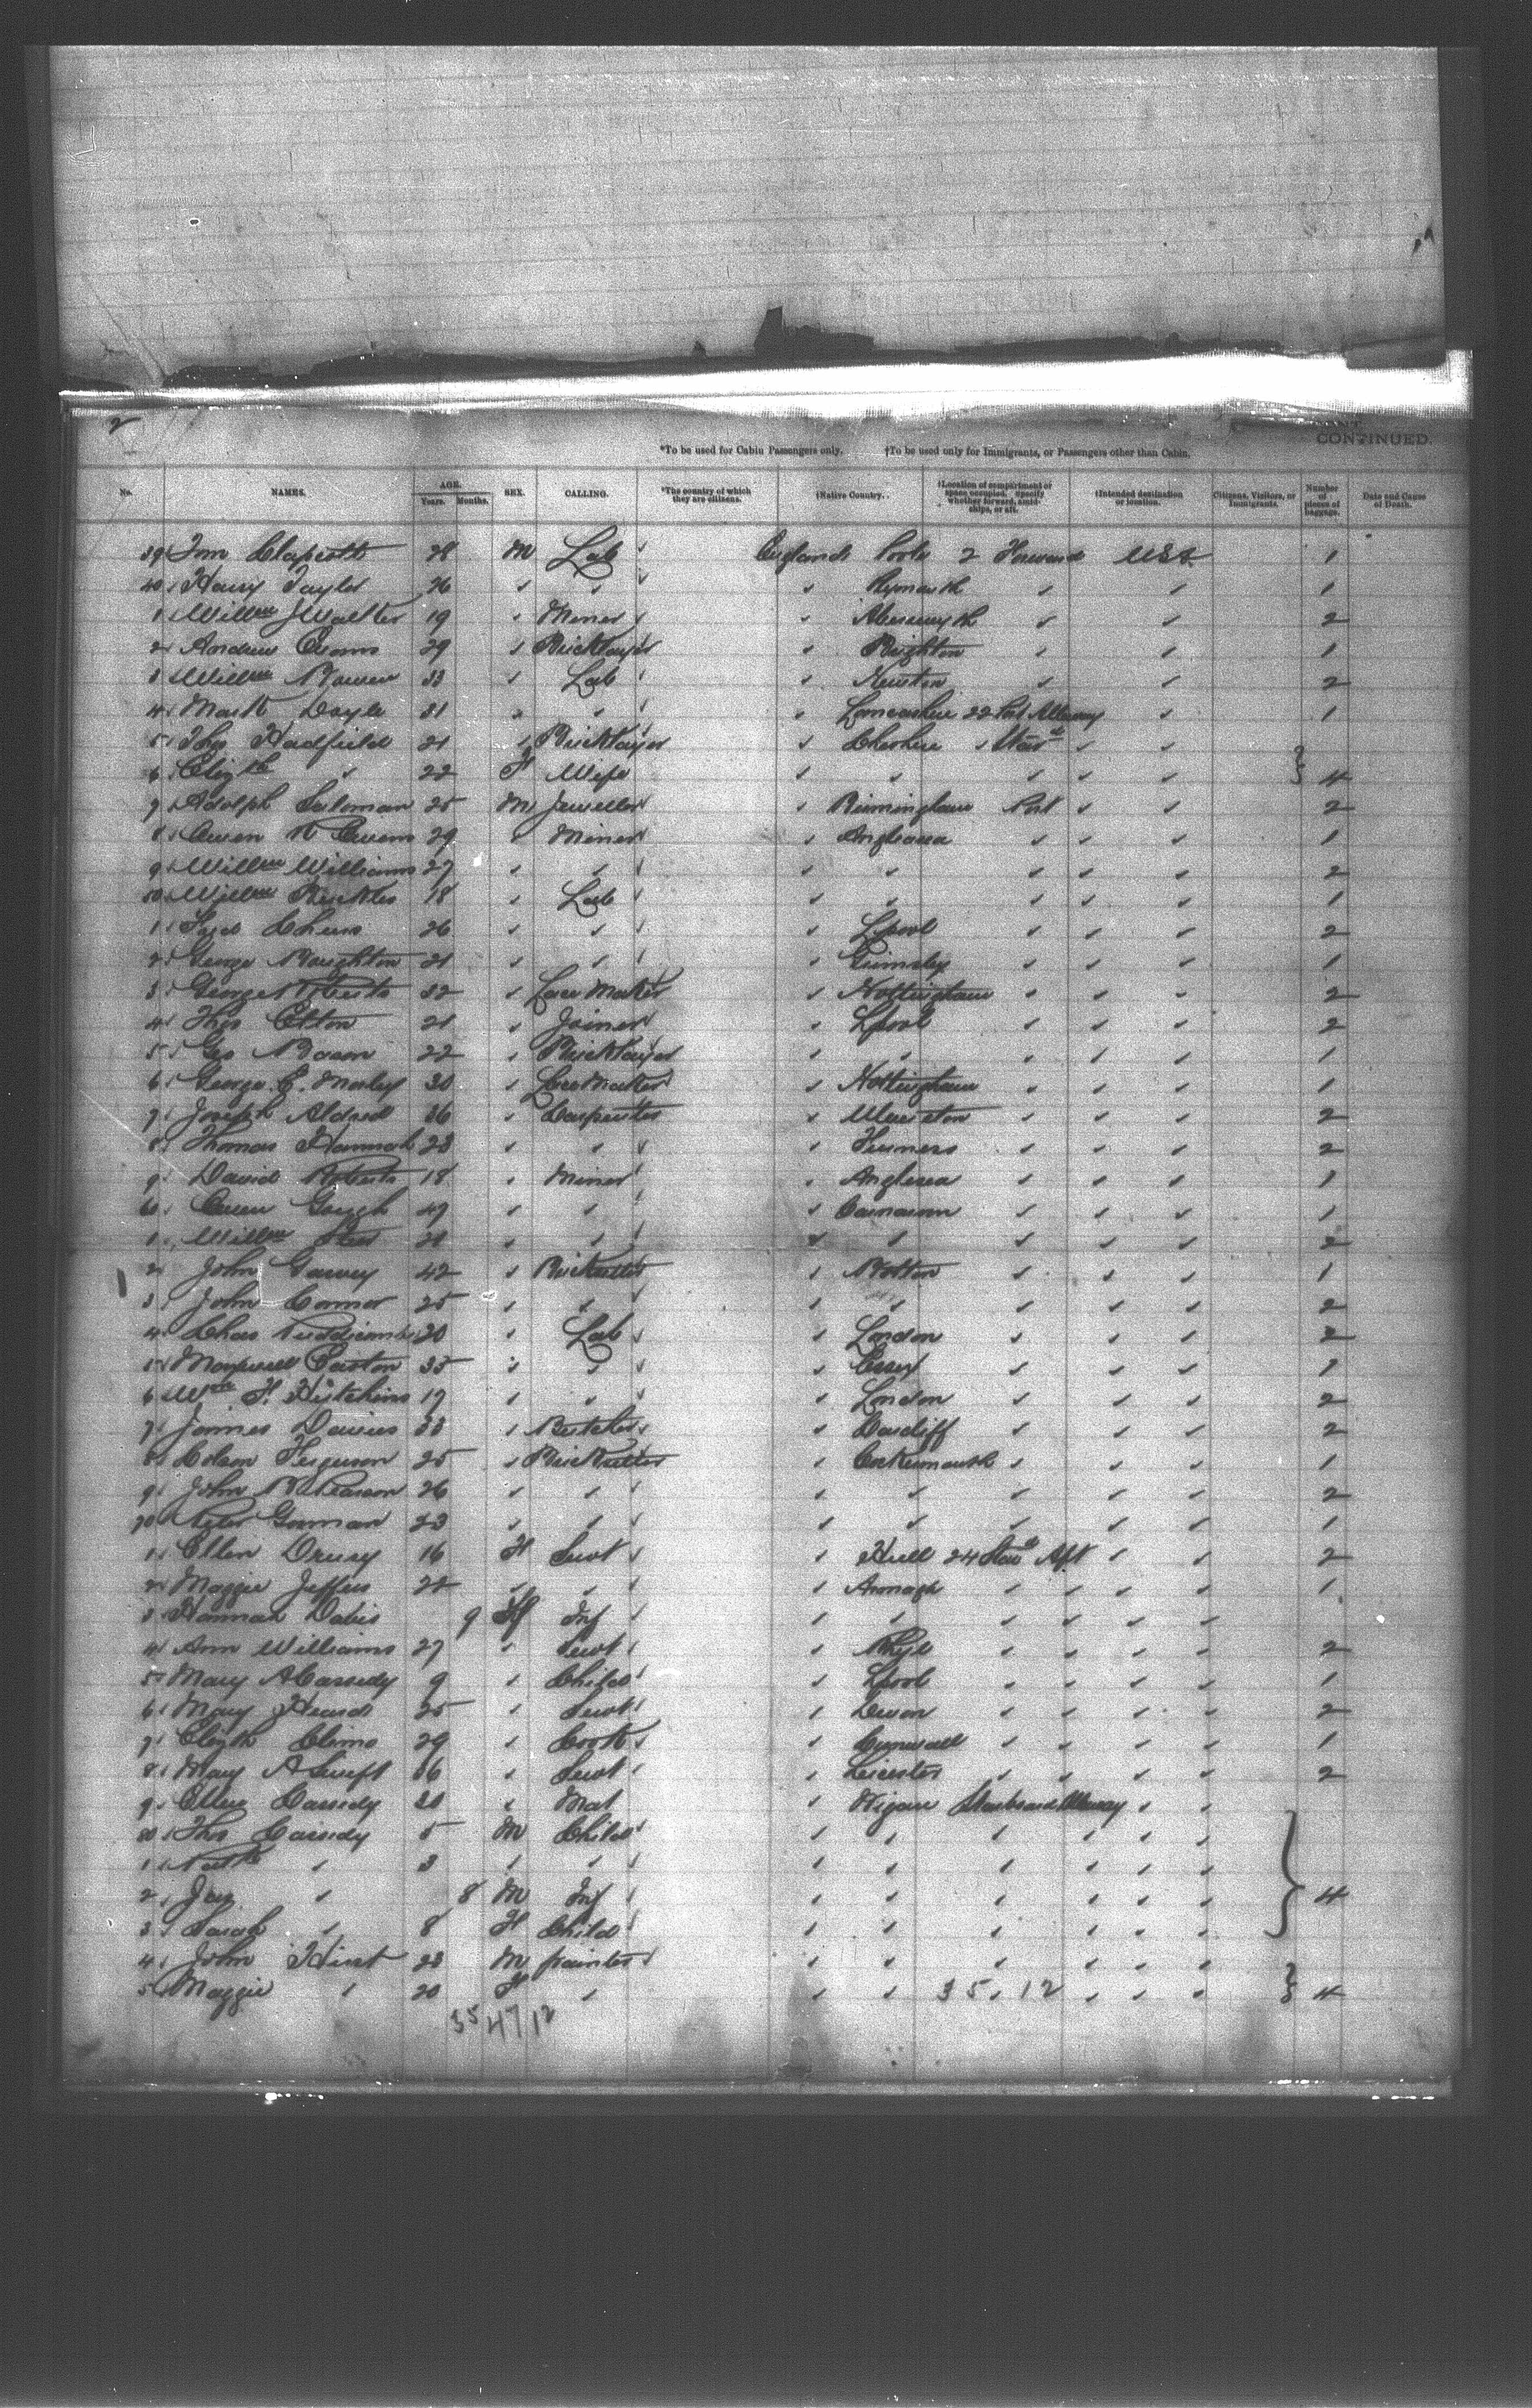 2
CONTINUED.
*To be used for Cabin Passengers only. †To be used only for Immigrants, or Passengers other than Cabin.
No. NAMES. AGE. Years. Months. SEX. CALLING. *The country of which they are citizens. †Native Country. †Location of compartment or space occupied. Specify whether forward, amidships, or aft. †Intended destination or location. Citizens, Visitors, or Immigrants. Number of pieces of baggage. Date and Cause of Death.
39 Tom Clapcott 28 M Lab England Poole 2 Forward USA 1
40 Harry Taylor 26 " " " Plymouth " " 1
1 Willm J Walter 19 " Miner " " " 2
2 Andrew Evans 29 " Bricklayer " Brighton " " 1
3 Willm Bowen 33 " Lab " Newton " " 2
4 Mark Doyle 31 " " " Lancashire 22 Port Alleway " 1
5 Thos Hadfield 21 " Bricklayer " Cheshire " Starbd " "
6 Elizth " 22 F Wife " " " " " 4
7 Adolph Saloman 25 M Jeweller " Birmingham Port " " 2
8 Owen R Owens 29 " Miner " Anglesea " " " 1
9 Willm Williams 27 " " " " " " " 2
50 Willm 18 " Lab " " " " " 1
1 26 " " " Lpool " " " 2
2 George 21 " " " Grimsby " " " 1
3 George Roberts 32 " Lace Maker " Nottingham " " " 2
4 Thos Elton 21 " Joiner " Lpool " " " 2
5 Geo 22 " Bricklayer " " " " " 1
6 George E. Morley 30 " Lace Maker " Nottingham " " " 1
7 Joseph Aldred 36 " Carpenter " Ulverston " " " 2
8 Thomas Hannah 23 " " " Furness " " " 2
9 David Roberts 18 " Miner " Anglesea " " " 1
60 Owen Gough 49 " " " Carnarvon " " " 1
1 Willm 21 " " " " " " " 2
2 John Garvey 42 " " Bolton " " " 1
3 John Connor 25 " " " " " " " 2
4 Chas Puddicomb 20 " Lab " London " " " 2
5 Maxwell Easton 35 " " " Essex " " " 1
6 Wm H. Hutchins 19 " " " London " " " 2
7 James Davies 33 " Butcher " Cardiff " " " 2
8 Ferguson 25 " " Cockermouth " " " 1
9 John Pearson 26 " " " " " " " 2
70 Peter Gorman 23 " " " " " " " 1
1 Ellen Drury 16 F Servt " Hull 24 Starbd Aft " " 2
2 Maggie Jeffers 22 " " " Armagh " " " " 1
3 Hannah Davis 9 F Inf " " " " " "
4 Ann Williams 27 " Servt " Rhyl " " " " 2
5 Mary A Cassidy 9 " Child " Lpool " " " " 1
6 Mary Heard 25 " Servt " Devon " " " " 2
7 Elizth Climo 29 " Cook " Cornwall " " " " 1
8 Mary A Swift 36 " Servt " Leicester " " " " 2
9 Ellen Cassidy 30 " Mat " Wigan Starboard Alleway " "
80 Thos Cassidy 5 M Child " " " " " "
1 " 3 " " " " " " " "
2 Jas " 8 M Inf " " " " " " 4
3 Sarah " 8 F Child " " " " " "
4 John Hirst 23 M painter " " " " " "
5 Maggie " 20 F " " " 35.12 " " " 4
35 47 12